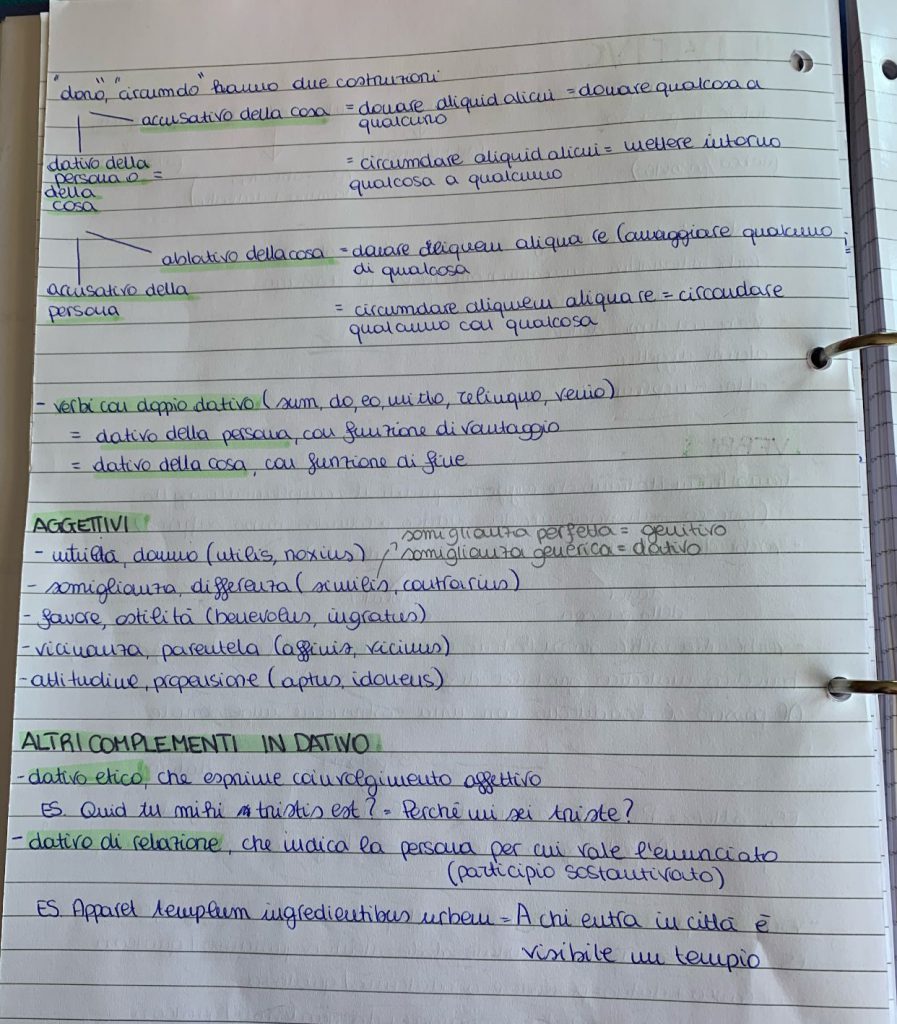 "dono", "circumdo" hanno due costruzioni
accusativo della cosa = donare aliquid alicui = donare qualcosa a
qualcuno
dativo della
persona o =
della
cosa
= circumdare aliquid alicui = mettere intorno
qualcosa a qualcuno
ablativo della cosa = donare aliquem aliqua re (omaggiare qualcuno
di qualcosa
accusativo della
persona
= circumdare aliquem aliqua re = circondare
qualcuno con qualcosa
- verbi con doppio dativo (sum, do, eo, mitto, relinquo, venio)
= dativo della persona, con funzione di vantaggio
= dativo della cosa, con funzione di fine
AGGETTIVI
somiglianza perfetta = genitivo
somiglianza generica = dativo
- utilità, danno (utilis, noxius)
- somiglianza, differenza (similis, contrarius)
- favore, ostilità (benevolus, ingratus)
- vicinanza, parentela (affinis, vicinus)
- attitudine, propensione (aptus, idoneus)
ALTRI COMPLEMENTI IN DATIVO
- dativo etico, che esprime coinvolgimento affettivo
ES. Quid tu mihi tristis est? = Perché mi sei triste?
- dativo di relazione, che indica la persona per cui vale l'enunciato
(participio sostantivato)
ES. Apparet templum ingredientibus urbem = A chi entra in città è
visibile un tempio